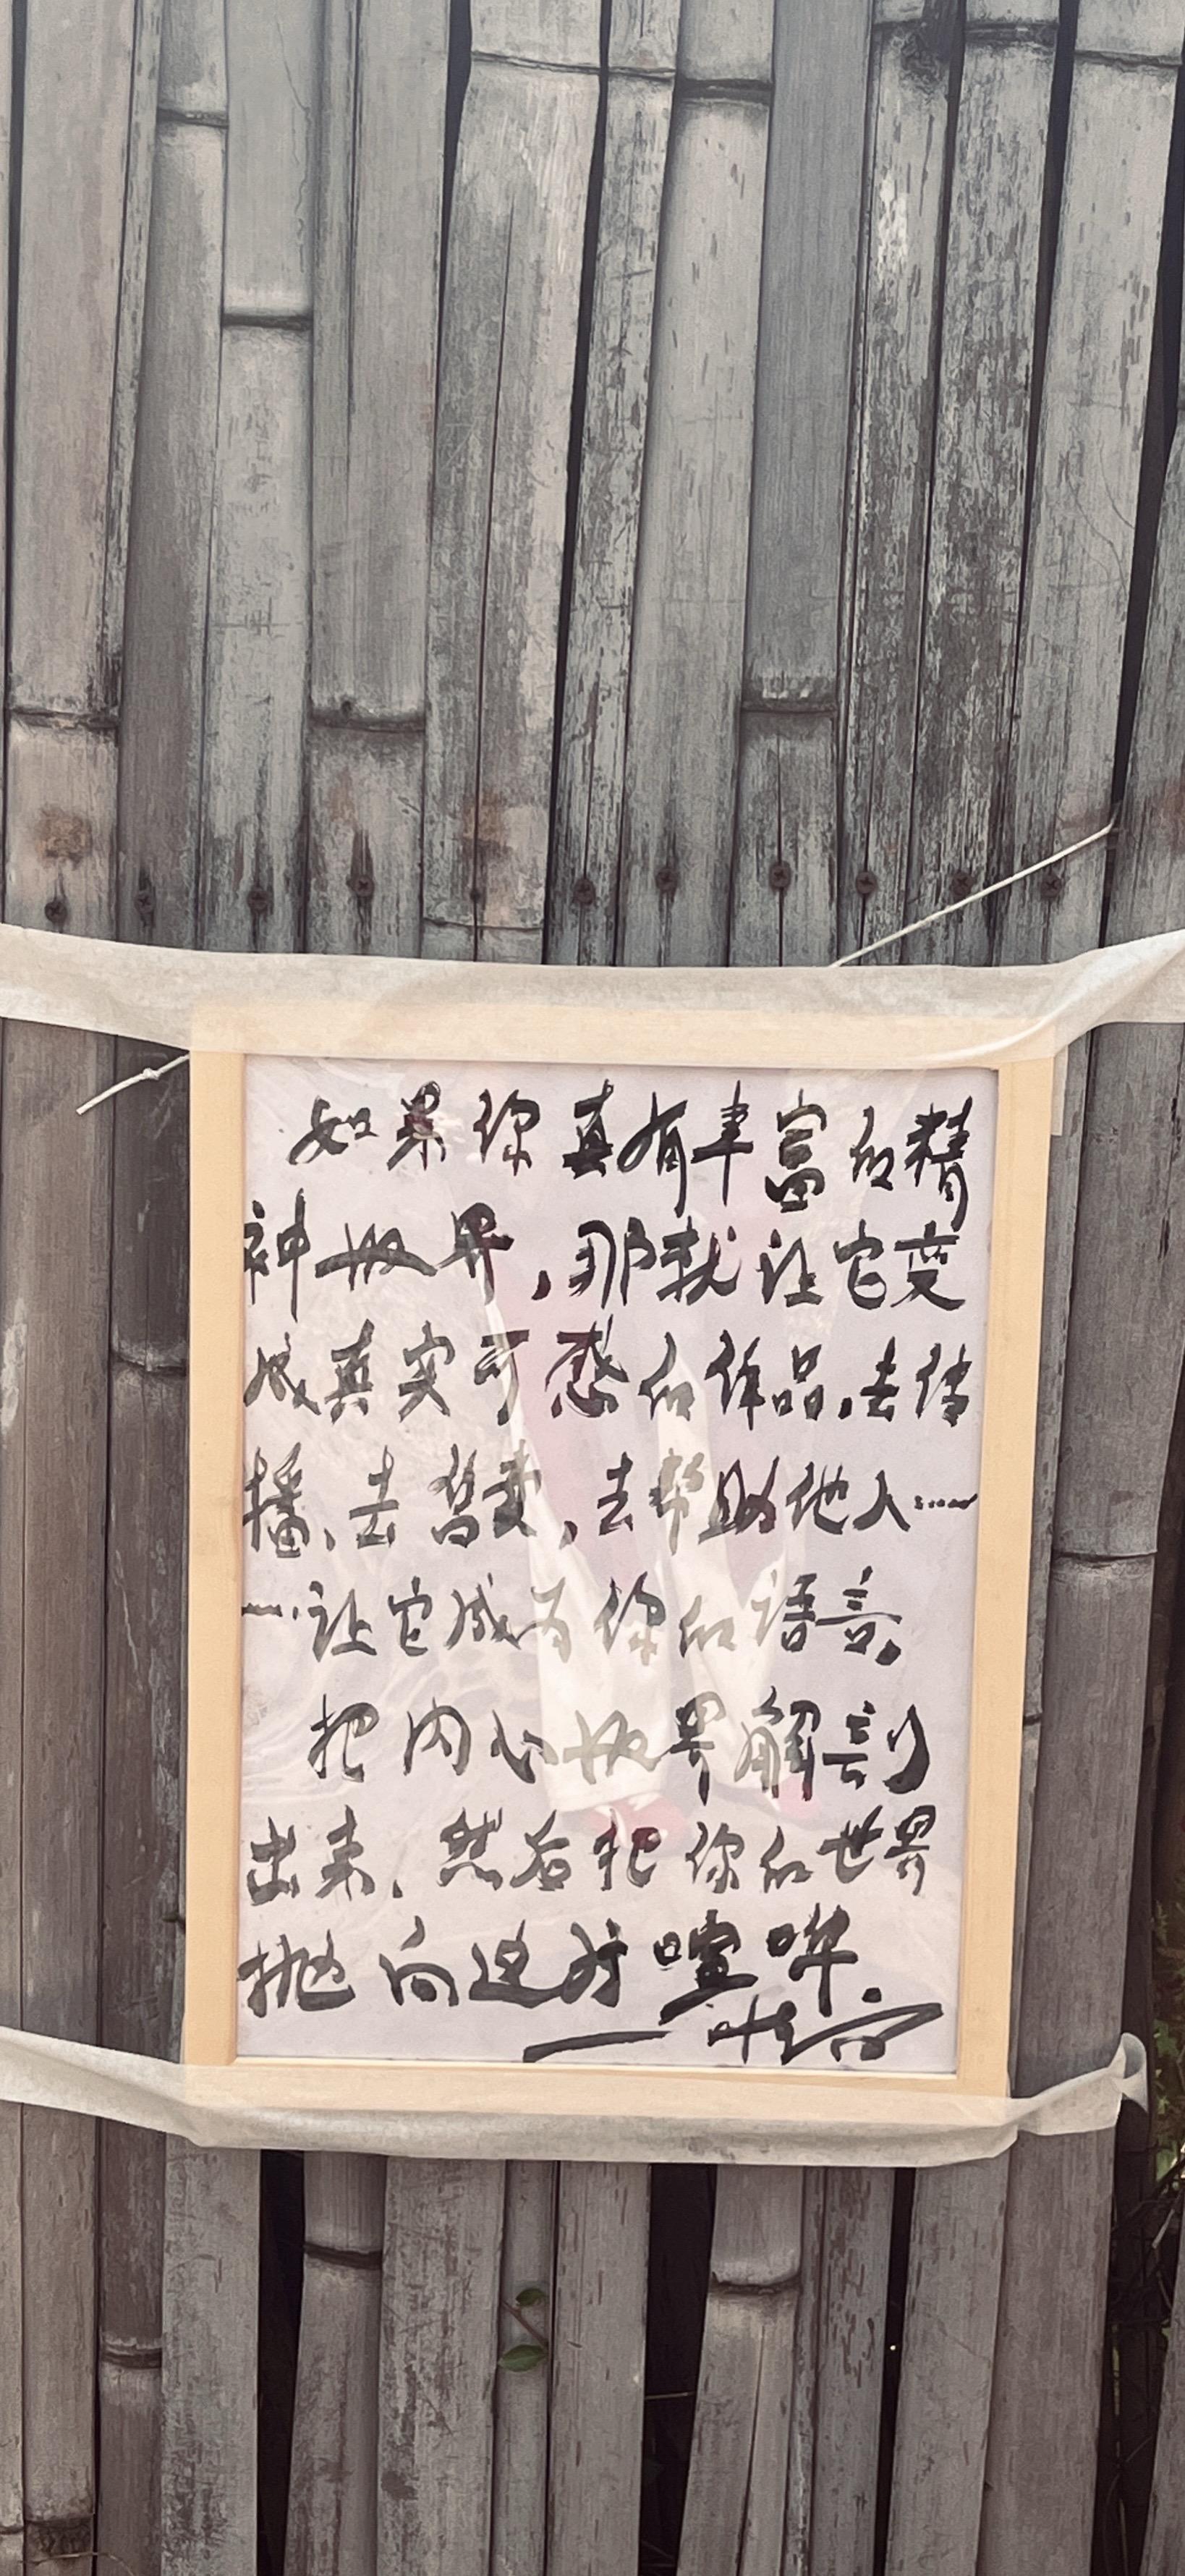 如果你真有丰富的精
神世界，那就让它变
成真实可感的作品，去传
播、去售卖，去帮助他人……
……让它成为你的语言。
把内心世界解剖
出来、然后把你的世界
抛向这片喧哗。